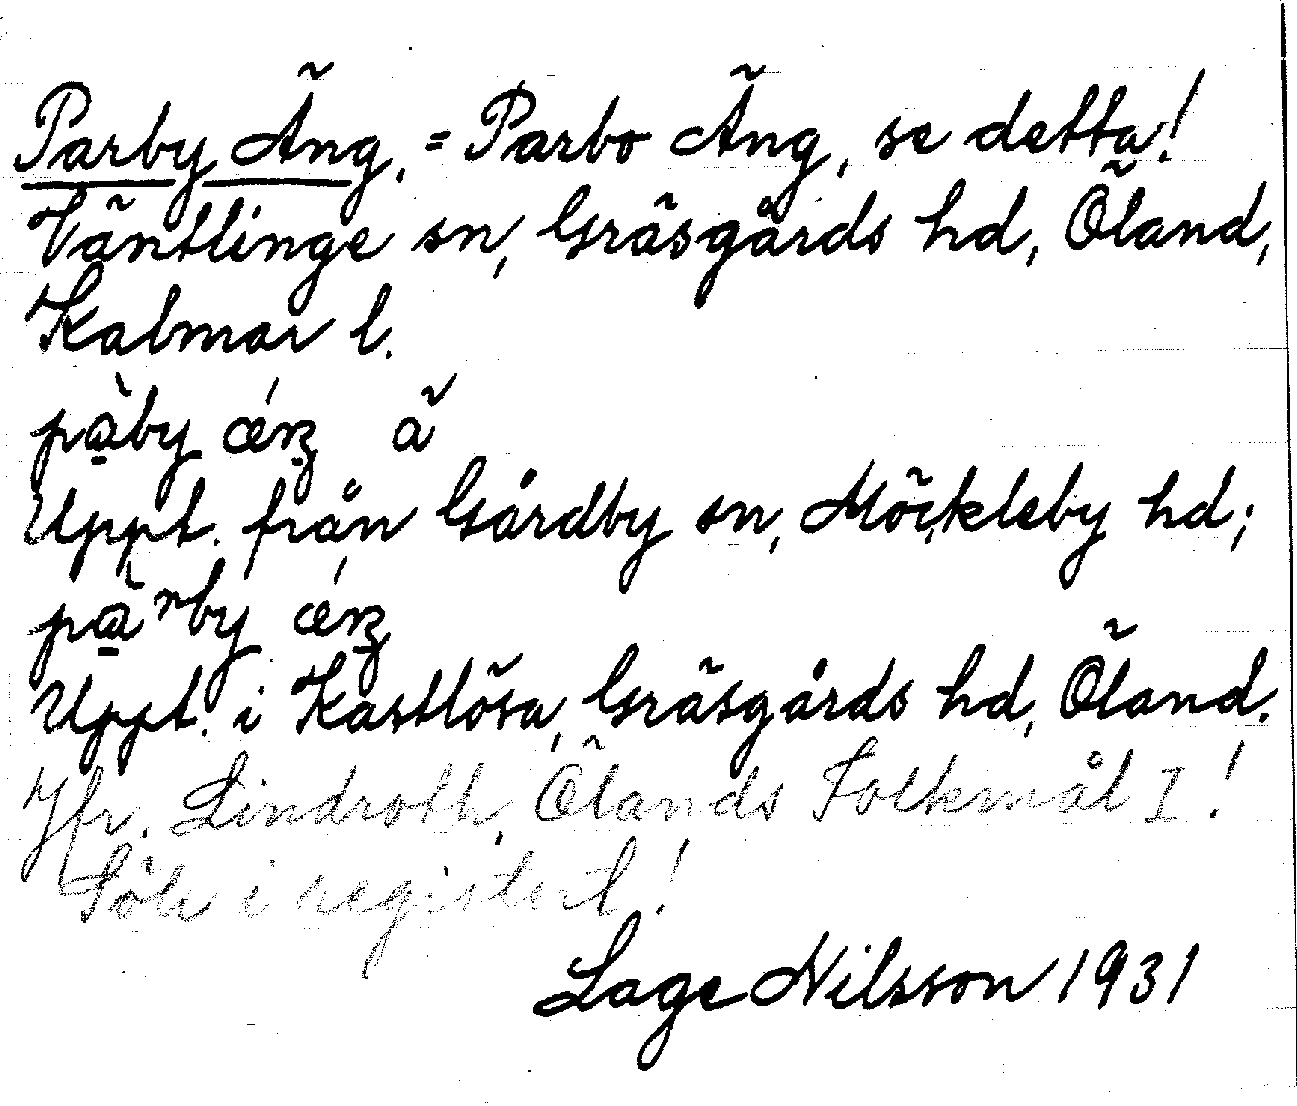 Parby Äng, = Parbo Äng, se detta!
Väntlinge sn, Gräsgårds hd, Öland,
Kalmar l.
Uppt. från Gårdby sn, Möckleby hd;
Uppt. i Kastlösa, Gräsgårds hd, Öland.
Jfr. Lindroth, Ölands Folkmål I!
Sök i registert!
Lage Nilsson 1931